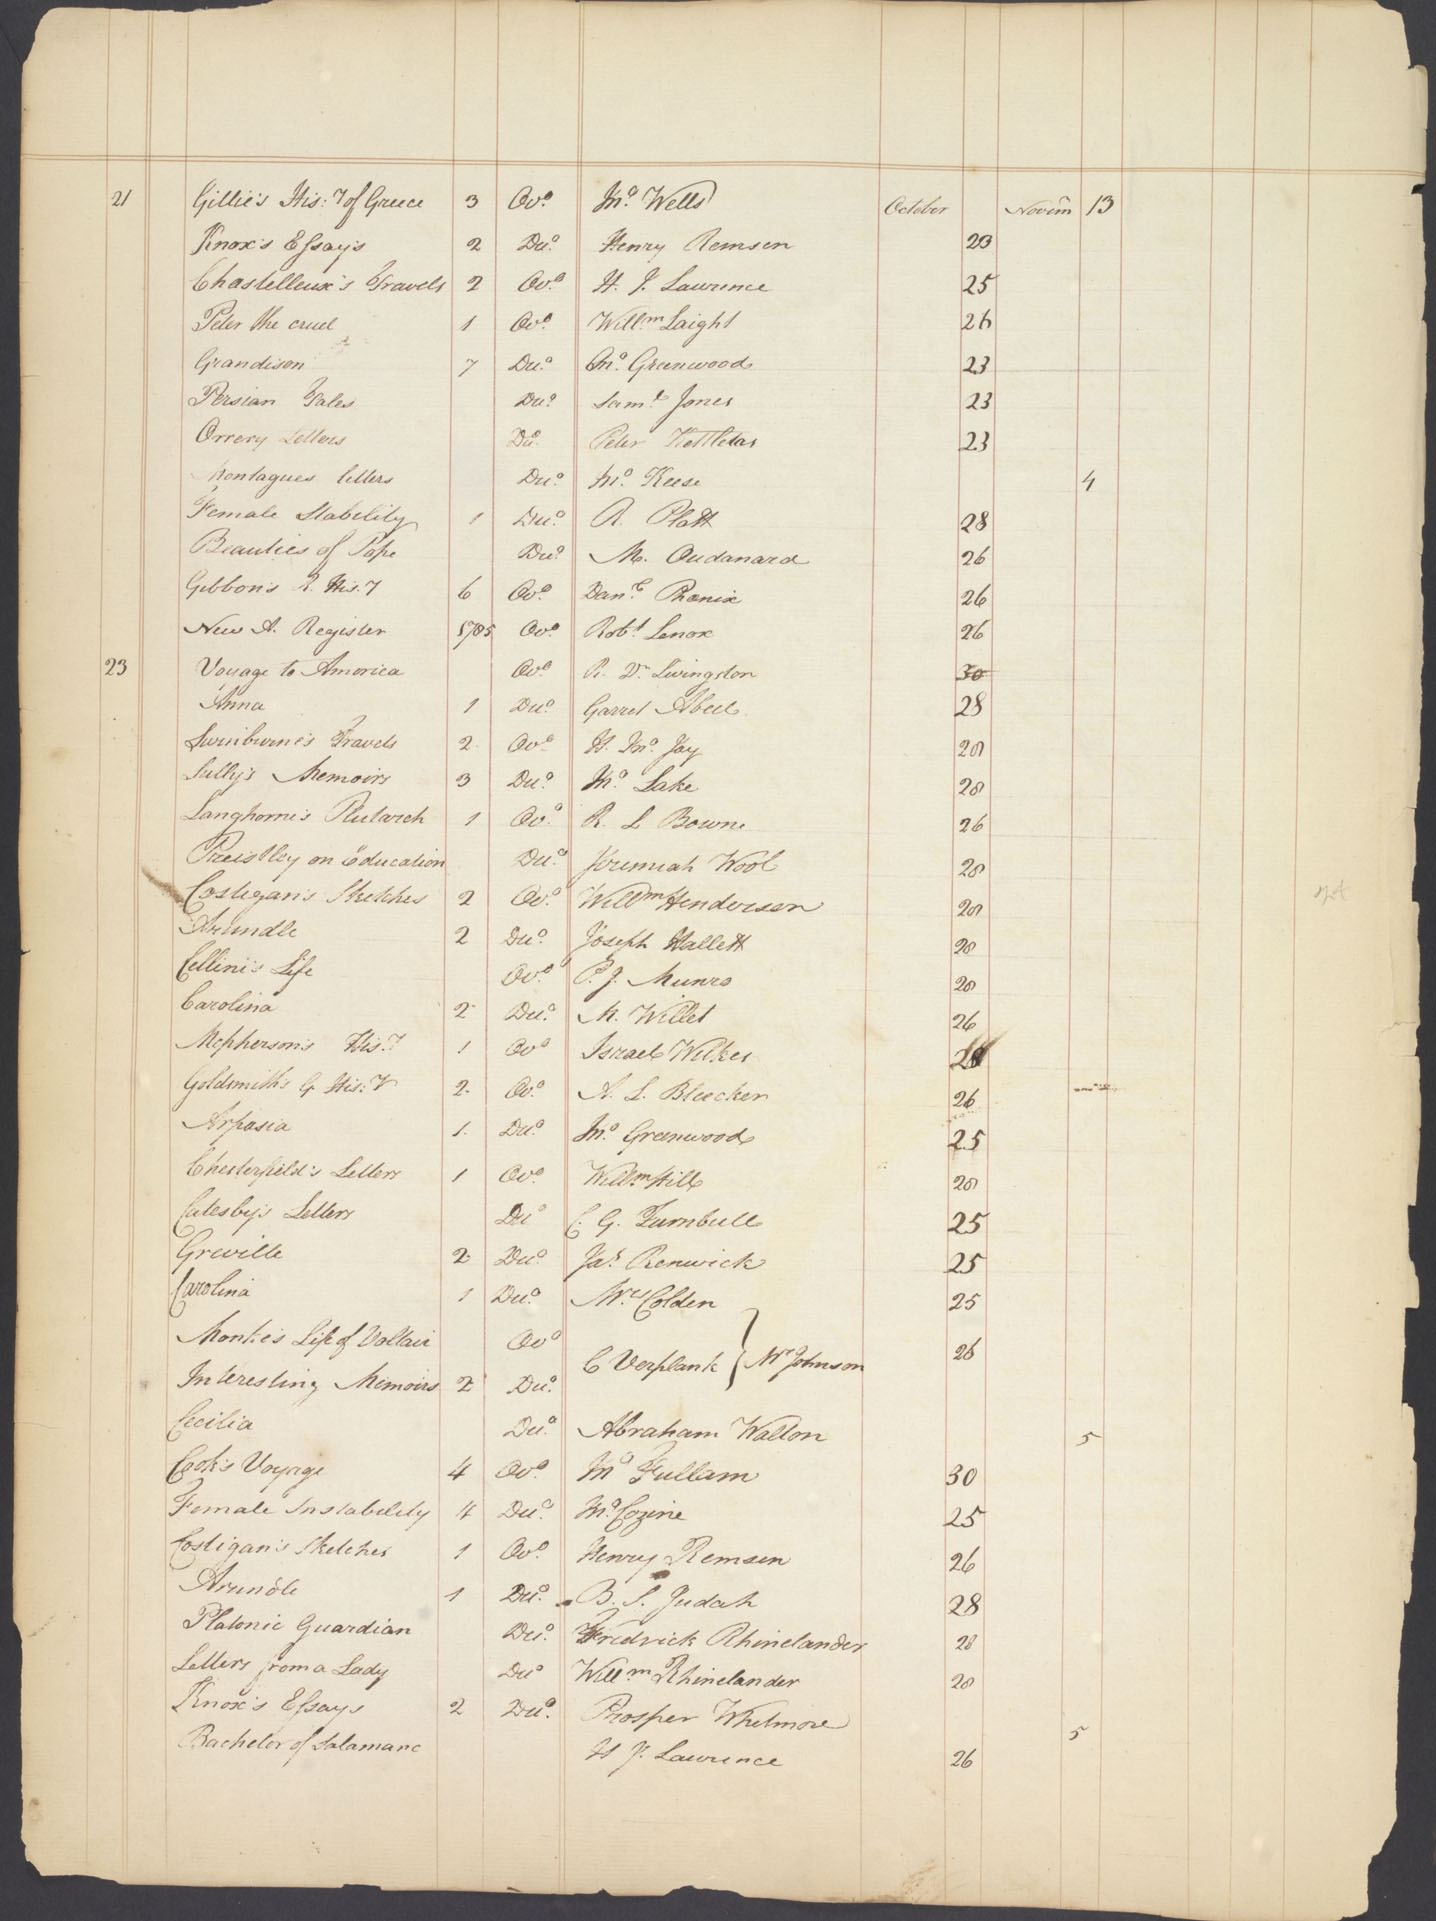 21 Gillie's His:y of Greece 3 Ovo. Jno. Wells October Novem 13
Knox's Essays 2 Duo. Henry Remsen 23
Chastelleux's Travels 2 Ovo. H. J. Lawrence 25
Peter the cruel 1 Ovo. Willm Laight 26
Grandison 7 Duo. Jno. Greenwood 23
Persian Tales Duo. Saml. Jones 23
Orrery Letters Duo. Peter Kettletas 23
Montagues letters Duo. Jno. Keese 4
Female Stability 1 Duo. R. Platt 28
Beauties of Pope Duo. M. Oudanard 26
Gibbon's R. His.y 6 Ovo. Danl. Phœnix 26
New A. Register 1785 Ovo. Robt Lenox 26
23 Voyage to America Ovo. R. Dr. Livingston 30
Anna 1 Duo. Garret Abeel 28
Swinburne's Travels 2 Ovo. H. Jno. Jay 28
Sully's Memoirs 3 Duo. Jno. Lake 28
Langhorne's Plutarch 1 Ovo. R. L Bowne 26
Preistley on Education Duo. Jeremiah Wool 28
Costigan's Sketches 2 Ovo. Willm Henderson 28
Arundle 2 Duo. Joseph Hallett 28
Cellini's Life Ovo. P. J. Munro 28
Carolina 2 Duo. M. Willet 26
Mcpherson's His.y 1 Ovo Israel Wilkes 28
Goldsmith's G His:y 2 Ovo. A. L. Bleecker 26
Aspasia 1 Duo. Jno. Greenwood 25
Chesterfield's Letters 1 Ovo. Willm Hill 28
Catesby's Letters Duo C. G. Turnbull 25
Greville 2 Duo. Jas Renwick 25
Carolina 1 Duo. Mrs Colden 25
Monke's Life of Voltair Ovo
C Verplank } Mr Johnson 26
Interesting Memoirs 2 Duo.
Cecilia Duo. Abraham Walton 5
Cook's Voyage 4 Ovo. Jno Fullam 30
Female Instability 4 Duo. Jno. Cozine 25
Costigan's Sketches 1 Ovo. Henry Remsen 26
Arundle 1 Duo. B. S. Judah 28
Platonic Guardian Duo. Fredrick Rhinelander 28
Letters from a Lady Duo Willm Rhinelander 28
Knox's Essays 2 Duo. Prosper Whetmore 5
Bachelor of Salamanc H J. Lawrence 26